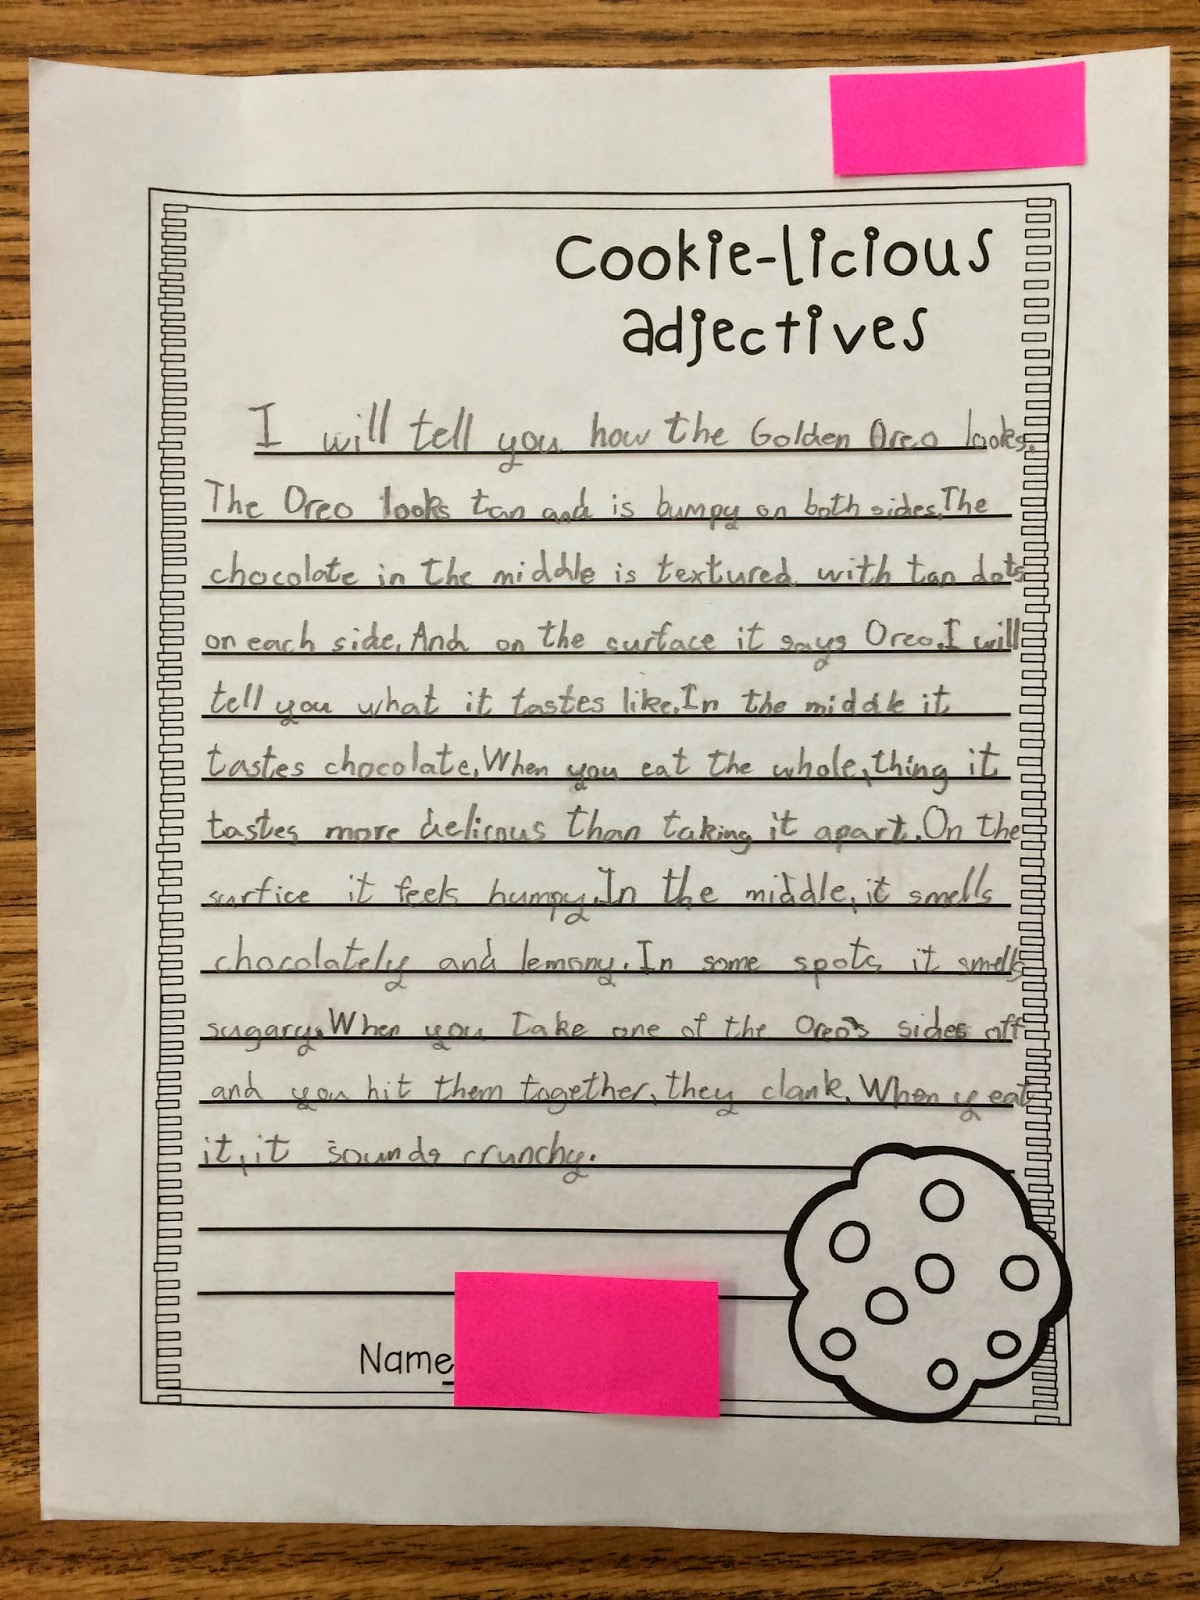 Cookie-licious
adjectives
I will tell you how the Golden Oreo looks.
The Oreo looks tan and is bumpy on both sides. The
chocolate in the middle is textured with tan dots
on each side. And on the surface it says Oreo. I will
tell you what it tastes like. In the middle it
tastes chocolate. When you eat the whole, thing it
tastes more delicous than taking it apart. On the
surfice it feels bumpy. In the middle, it smells
chocolately and lemony. In some spots it smells
sugary. When you take one of the Oreo's sides off
and you hit them together, they clank. When y eat
it, it sounds crunchy.
Name